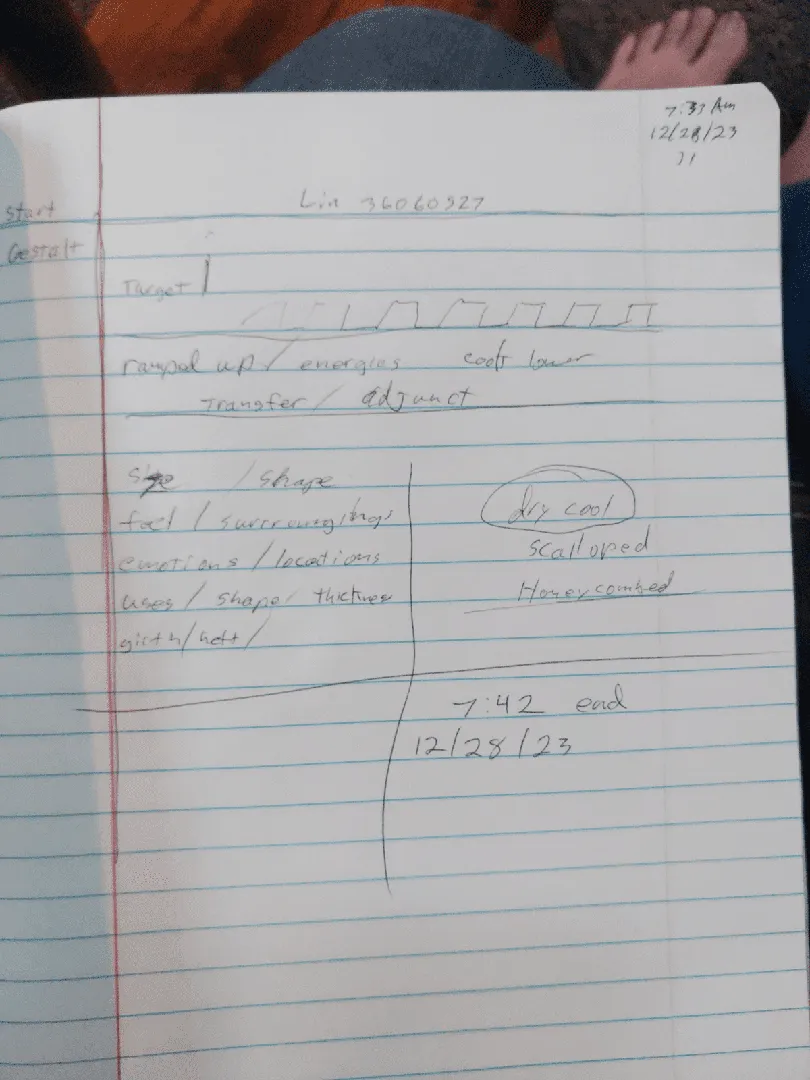 7:33 Am
12/28/23
Lin 36060527
start
Gestalt
Target
up / energies lower
Transfer / adjunct
size / shape
feel / surroungings
emotions / locations
uses / shape/ thicknes
girth/heft/
dry cool
scalloped
Honeycombed
7:42 end
12/28/23